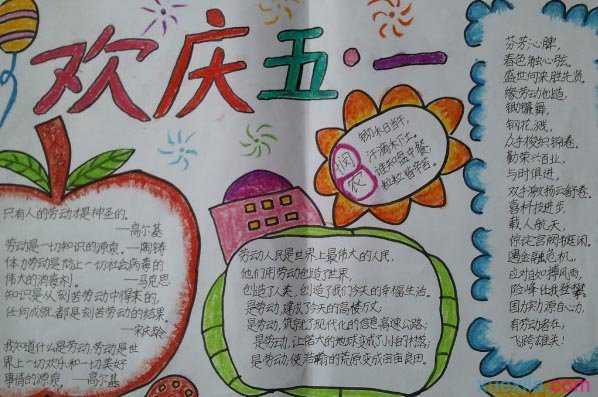 欢庆五·一
只有人的劳动才是神圣的。
——高尔基
劳动是一切知识的源泉。——陶铸
体力劳动是防止一切社会病毒的
伟大的消毒剂。——马克思
知识是从刻苦劳动中得来的,
任何成就都是刻苦劳动的结果。
——宋庆龄
我知道什么是劳动:劳动是世
界上一切欢乐和一切美好
事情的源泉。——高尔基
悯农
锄禾日当午,
汗滴禾下土。
谁知盘中餐,
粒粒皆辛苦。
劳动人民是世界上最伟大的人民,
他们用劳动创造了世界,
创造了人类,创造了我们今天的幸福生活。
是劳动,建成了今天的高楼万丈;
是劳动,筑就了现代化的信息高速公路;
是劳动,让偌大的地球变成了小小的村落;
是劳动,使浩瀚的荒原变成亩亩良田。
芬芳沁脾,
春色触心弦。
盛世何来胜先贤,
缘劳动创造,
钢花溅,
众手梭织锦卷。
勤荣六百业,
与时俱进,
双手激扬云舒卷。
喜科技进步,
载人航天,
惊诧宫阙都挺闲。
遇金融危机,
应对当如搏风雨,
险峰任我登攀。
国力动源自心力,
有劳动者在,
飞跨雄关!